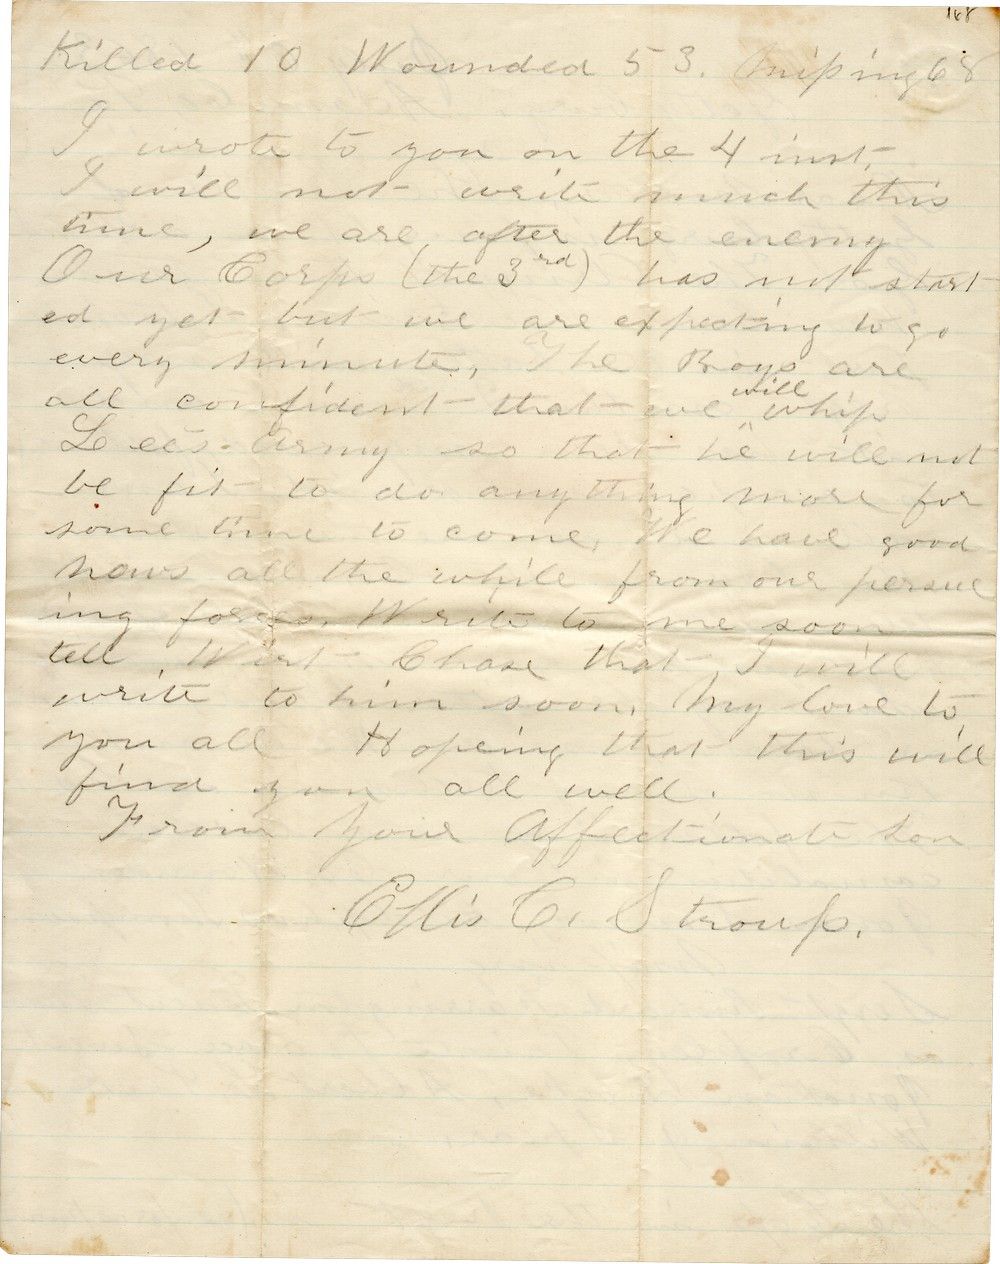 168
Killed 10 Wounded 53. Miping 68
I wrote to you on the 4 inst.
I will not write much this
time, we are after the enemy
Our Corps (the 3rd) has not start
ed yet but we are expecting to go
every minute, The Boys are
all confident that we will whip
Lee's Army so that he will not
be fit to do any thing more for
some time to come, We have good
naws all the while from our persue
ing forces. Write to me soon
tell Wert Chase that I will
write to him soon. My love to
you all Hopeing that this will
find you all well.
From Your Affectionate Son
Ellis C. Stroup.